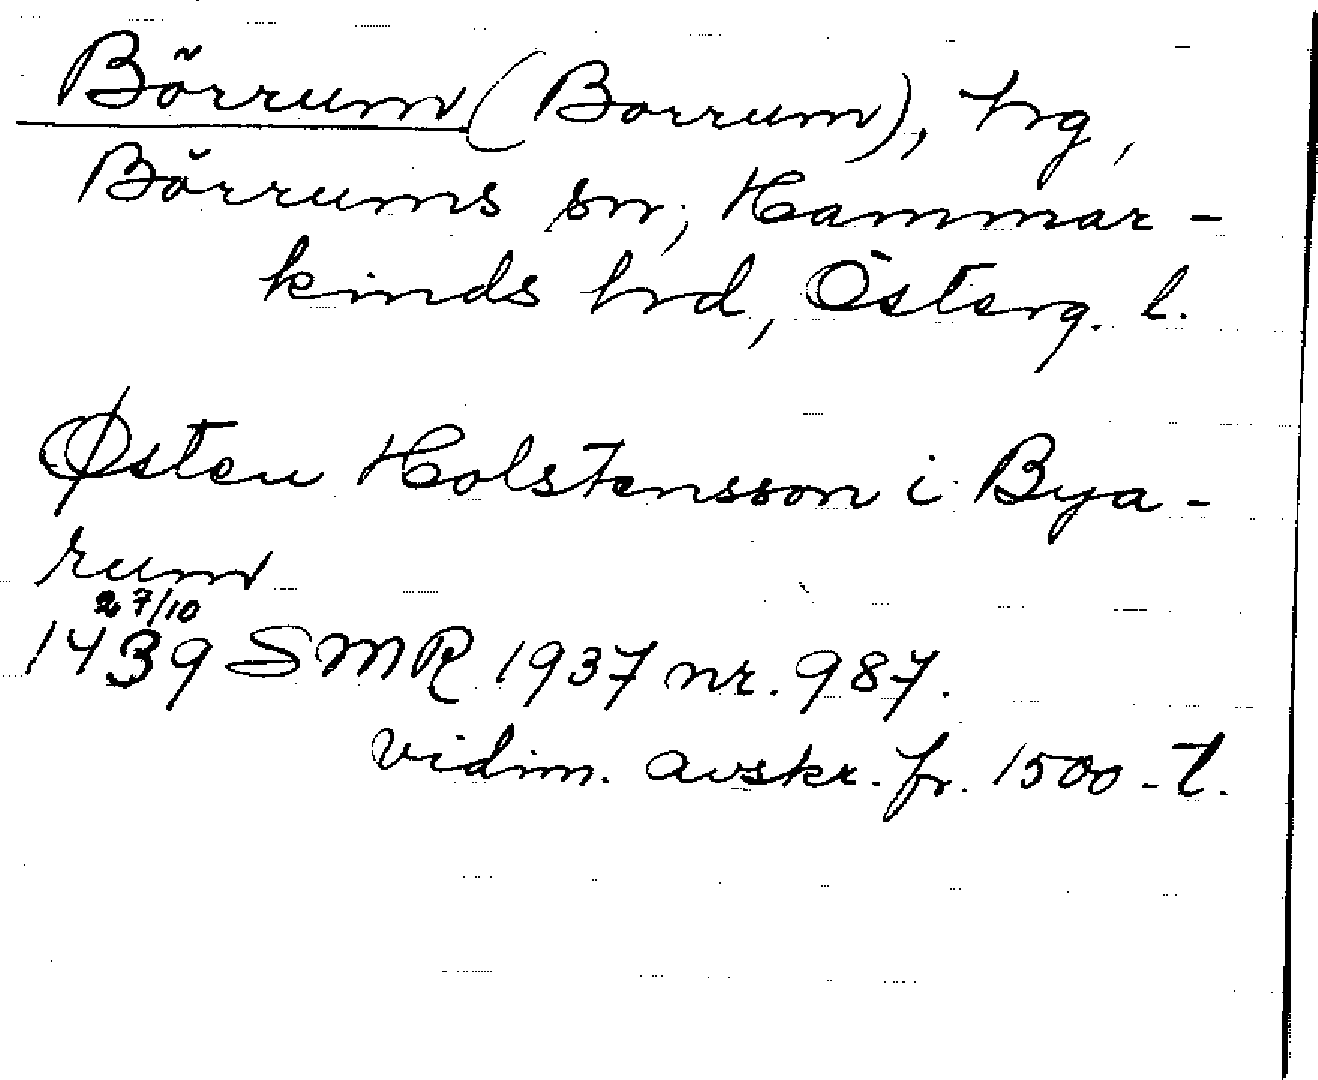 Börrum (Borrum), hg,
Börrums sn, Hammar-
kinds hrd, Österg. l.
Østen Holstensson i Bya-
rum
27/10
1439 SMR 1937 nr. 987.
vidim. avskr. fr. 1500-t.